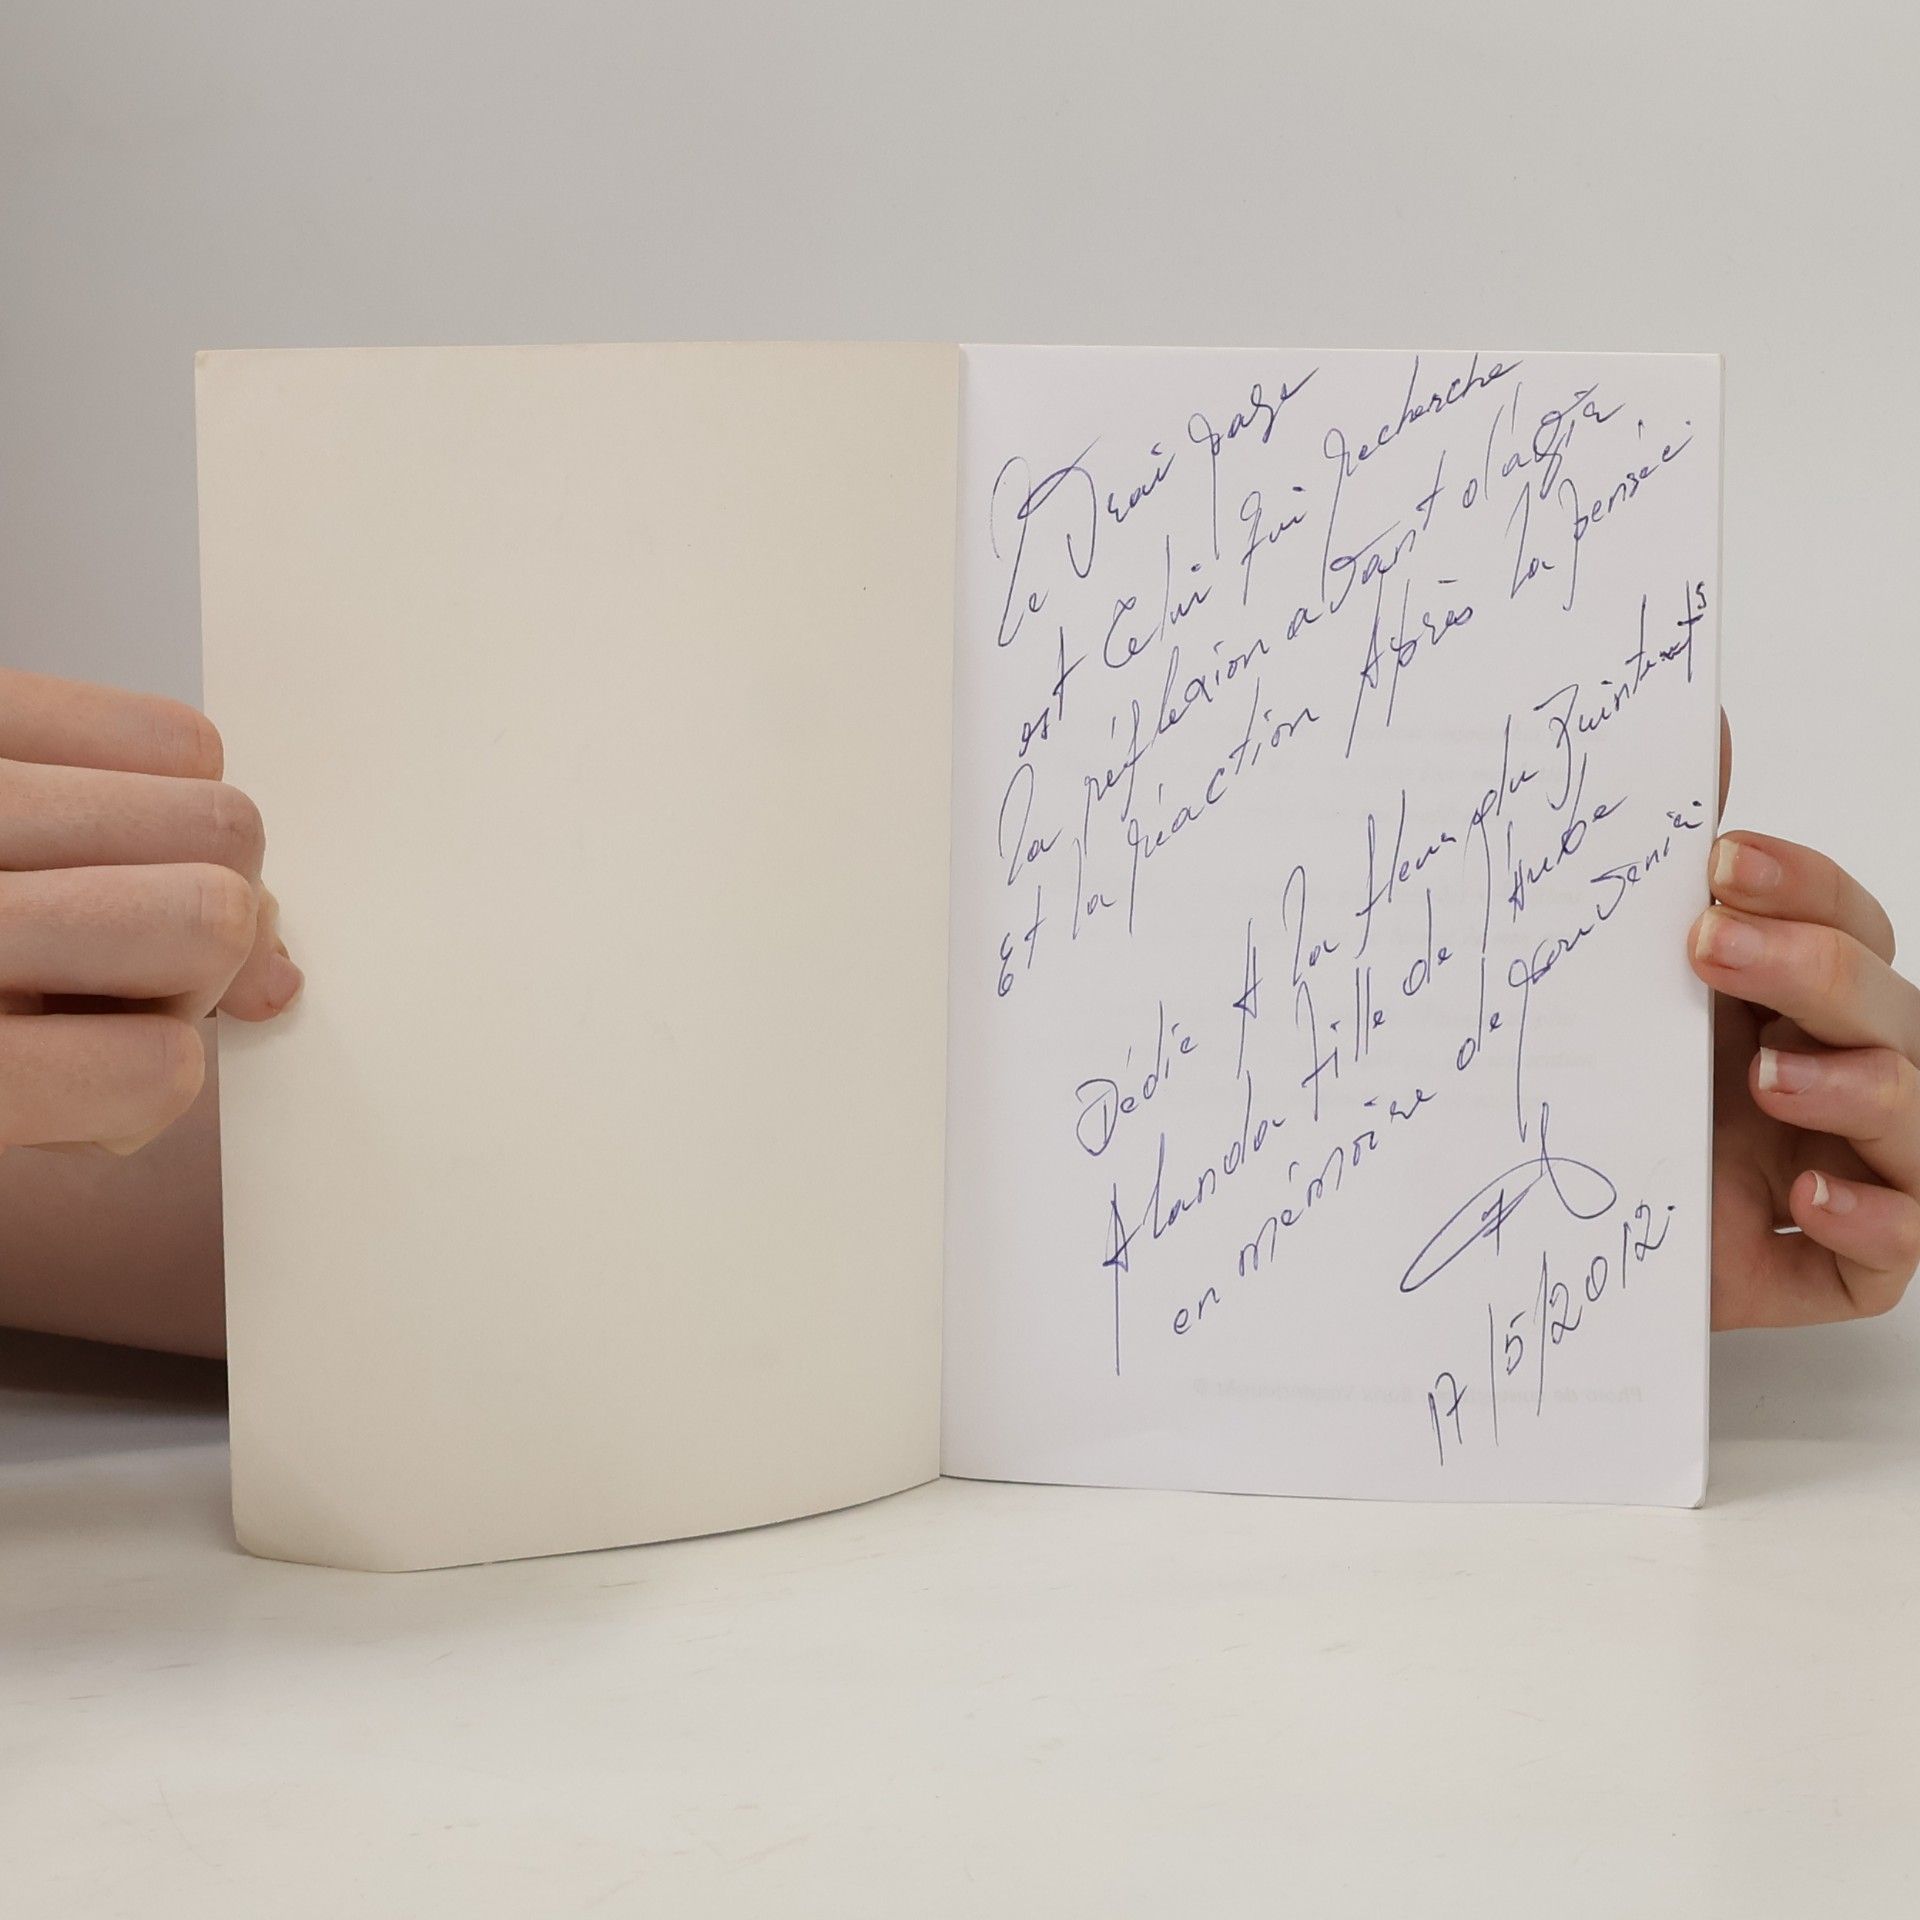 Le Vrai sage
est Celui qui recherche
la réflexion avant d'agir
Et la réaction Après la pensée.
Dédié A la fleur du
Alanda fille de l'Aube
en mémoire de
17/5/2012.